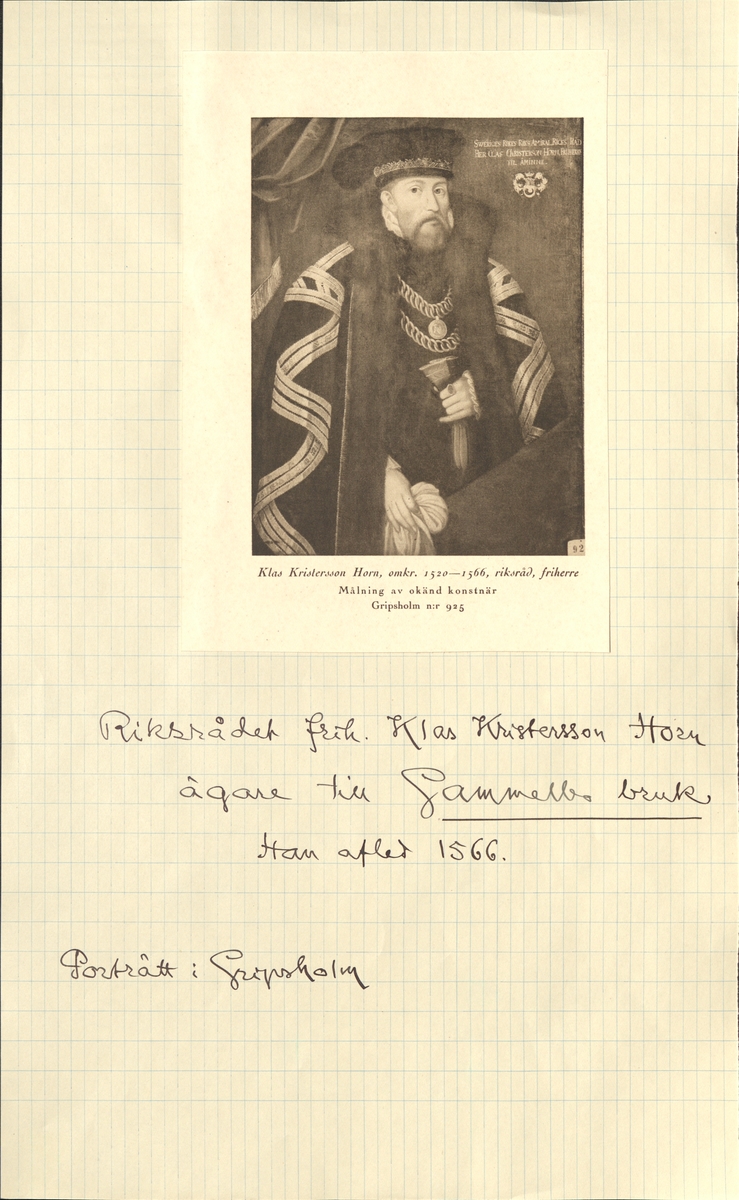 HER CLAS CHRISTERSON HORN, FRIHERRE
TIL ÅMINNE
92
Klas Kristersson Horn, omkr. 1520—1566, riksråd, friherre
Målning av okänd konstnär
Gripsholm n:r 925
Riksrådet frih. Klas Kristersson Horn
ägare till Gammelbo bruk
Han afled 1566.
Porträtt i Gripsholm